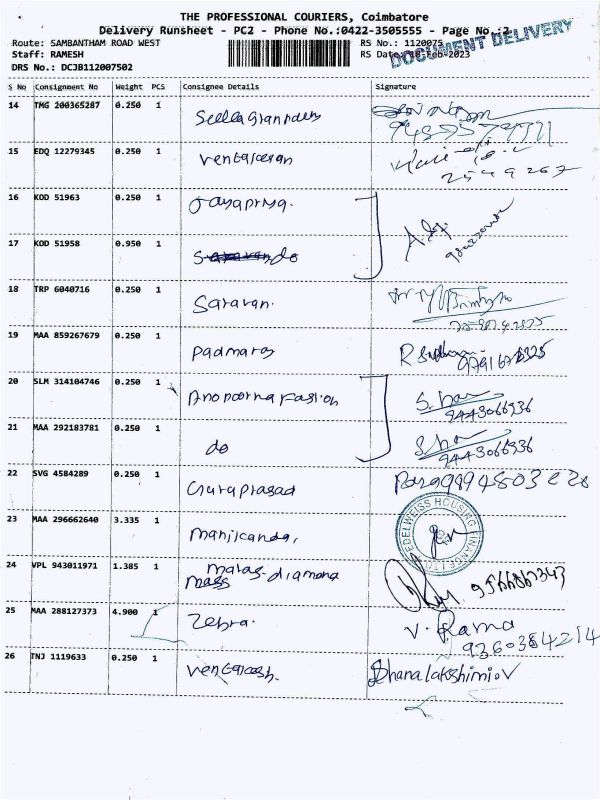 THE PROFESSIONAL COURIERS, Coimbatore
Delivery Runsheet - PC2 - Phone No.:0422-3505555 - Page No.:2
Route: SAMBANTHAM ROAD WEST RS No.: 1120075
Staff: RAMESH RS Date: 18-Feb-2023
DOCUMENT DELIVERY
DRS No.: DCJB112007502
S No Consignment No Weight PCS Consignee Details Signature
14 TMG 200365287 0.250 1
15 EDQ 12279345 0.250 1
16 KOD 51963 0.250 1 Jayapriya.
17 KOD 51958 0.950 1 do
18 TRP 6040716 0.250 1 Saravan.
19 MAA 859267679 0.250 1 Padmaraj
20 SLM 314104746 0.250 1 Annoorna Fasion 9443066936
21 MAA 292183781 0.250 1 do 9443066936
22 SVG 4584289 0.250 1 Guruprasad
23 MAA 296662640 3.335 1 EDELWEISS HOUSING FINANCE LTD
24 VPL 943011971 1.385 1 mass diamond
25 MAA 288127373 4.900 1 Zebra. V. Rama
9360384214
26 TNJ 1119633 0.250 1 Dhanalakshmi V